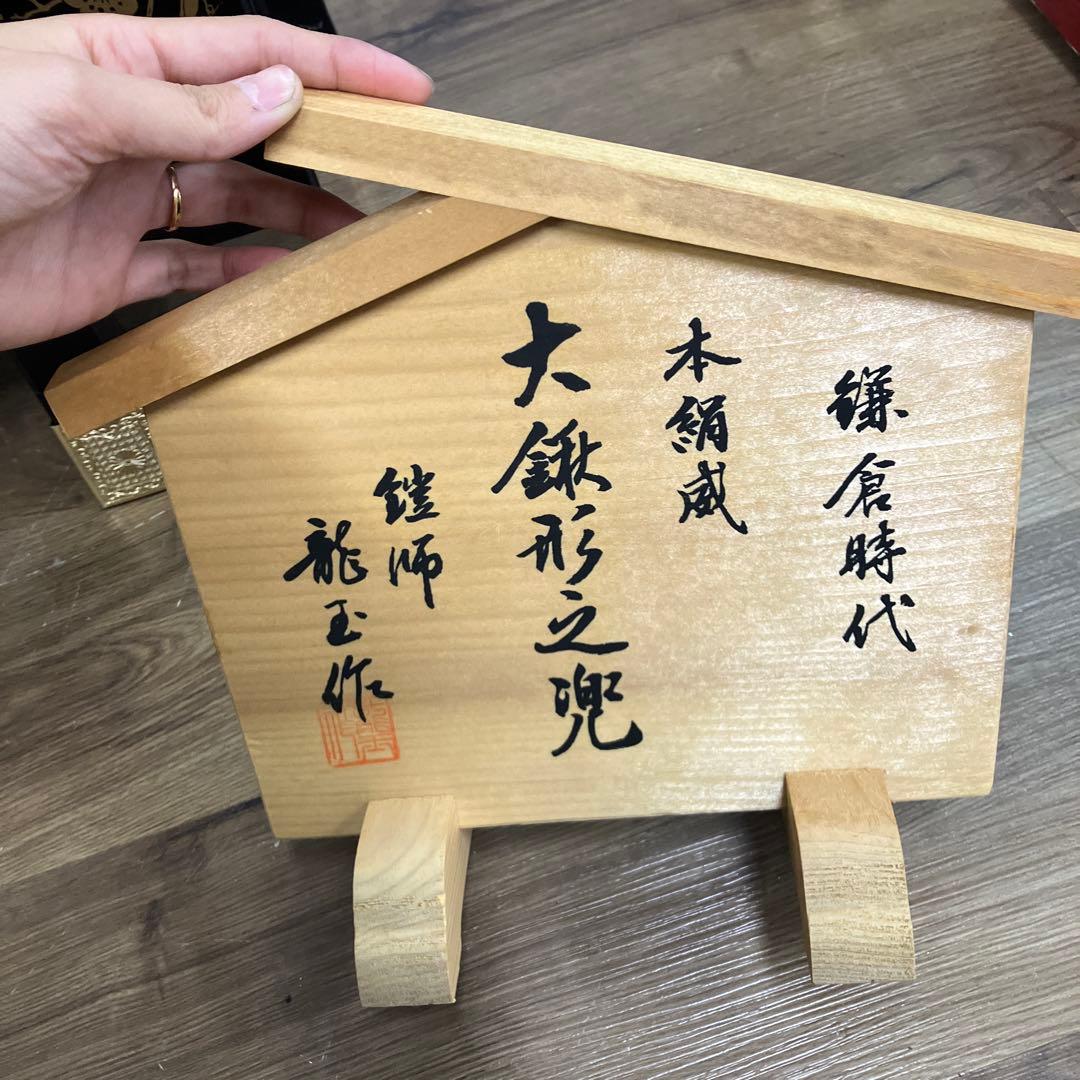 鎌倉時代
本絹威
大鍬形之兜
鎧師
龍玉作